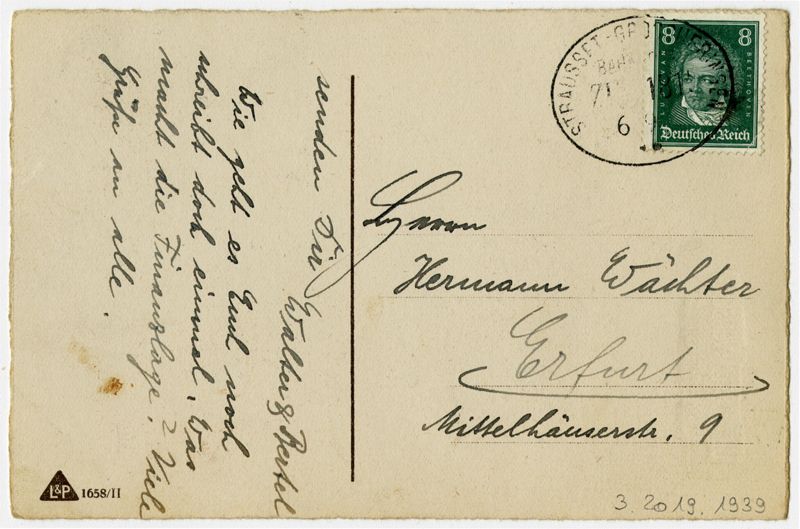 senden Dir Walter & Bertel
Wie geht es Euch noch
schreibt doch einmal. Was
macht die Finanzlage? Viele
Grüße an alle.
L&P 1658/II
STRAUSSFURT-GROSSHERINGEN
BAHNPOST
ZUG
6
8 8
LUDWIG VAN BEETHOVEN
Deutsches Reich
Herrn
Hermann Wächter
Erfurt
Mittelhäuserstr. 9
3. 2019. 1939